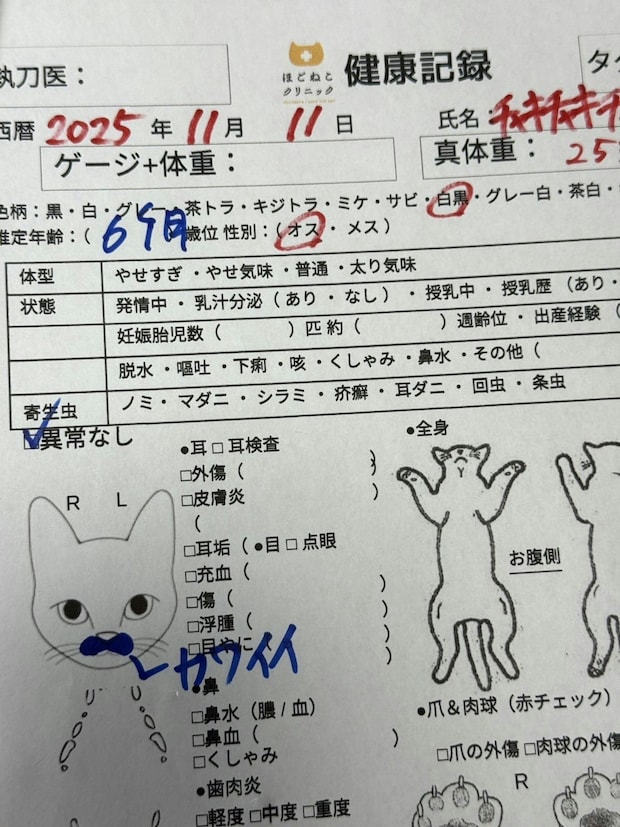 執刀医：
ほごねこ
クリニック
健康記録
タ
西暦 2025 年 11月 11日
氏名 チャキチャキチ
ゲージ+体重：
真体重： 25
色柄：黒・白・グレー・茶トラ・キジトラ・ミケ・サビ・白黒・グレー白・茶白・
推定年齢：（ 6ヶ月 歳位 性別：（オス・メス）
体型 やせすぎ・やせ気味・普通・太り気味
状態 発情中・乳汁分泌（あり・なし）・授乳中・授乳歴（あり・
妊娠胎児数（ ）匹 約（ ）週齢位・出産経験（
脱水・嘔吐・下痢・咳・くしゃみ・鼻水・その他（
寄生虫 ノミ・マダニ・シラミ・疥癬・耳ダニ・回虫・条虫
□異常なし
R L
カワイイ
●耳 □耳検査
□外傷（ ）
□皮膚炎 ）
（
□耳垢（ ●目 □点眼
□充血（ ）
□傷（ ）
□浮腫（ ）
□目やに（ ）
●鼻
□鼻水（膿/血）
□鼻血（ ）
□くしゃみ
●歯肉炎
□軽度 □中度 □重度
●全身
お腹側
●爪&肉球（赤チェック）
□爪の外傷 □肉球の外傷
R